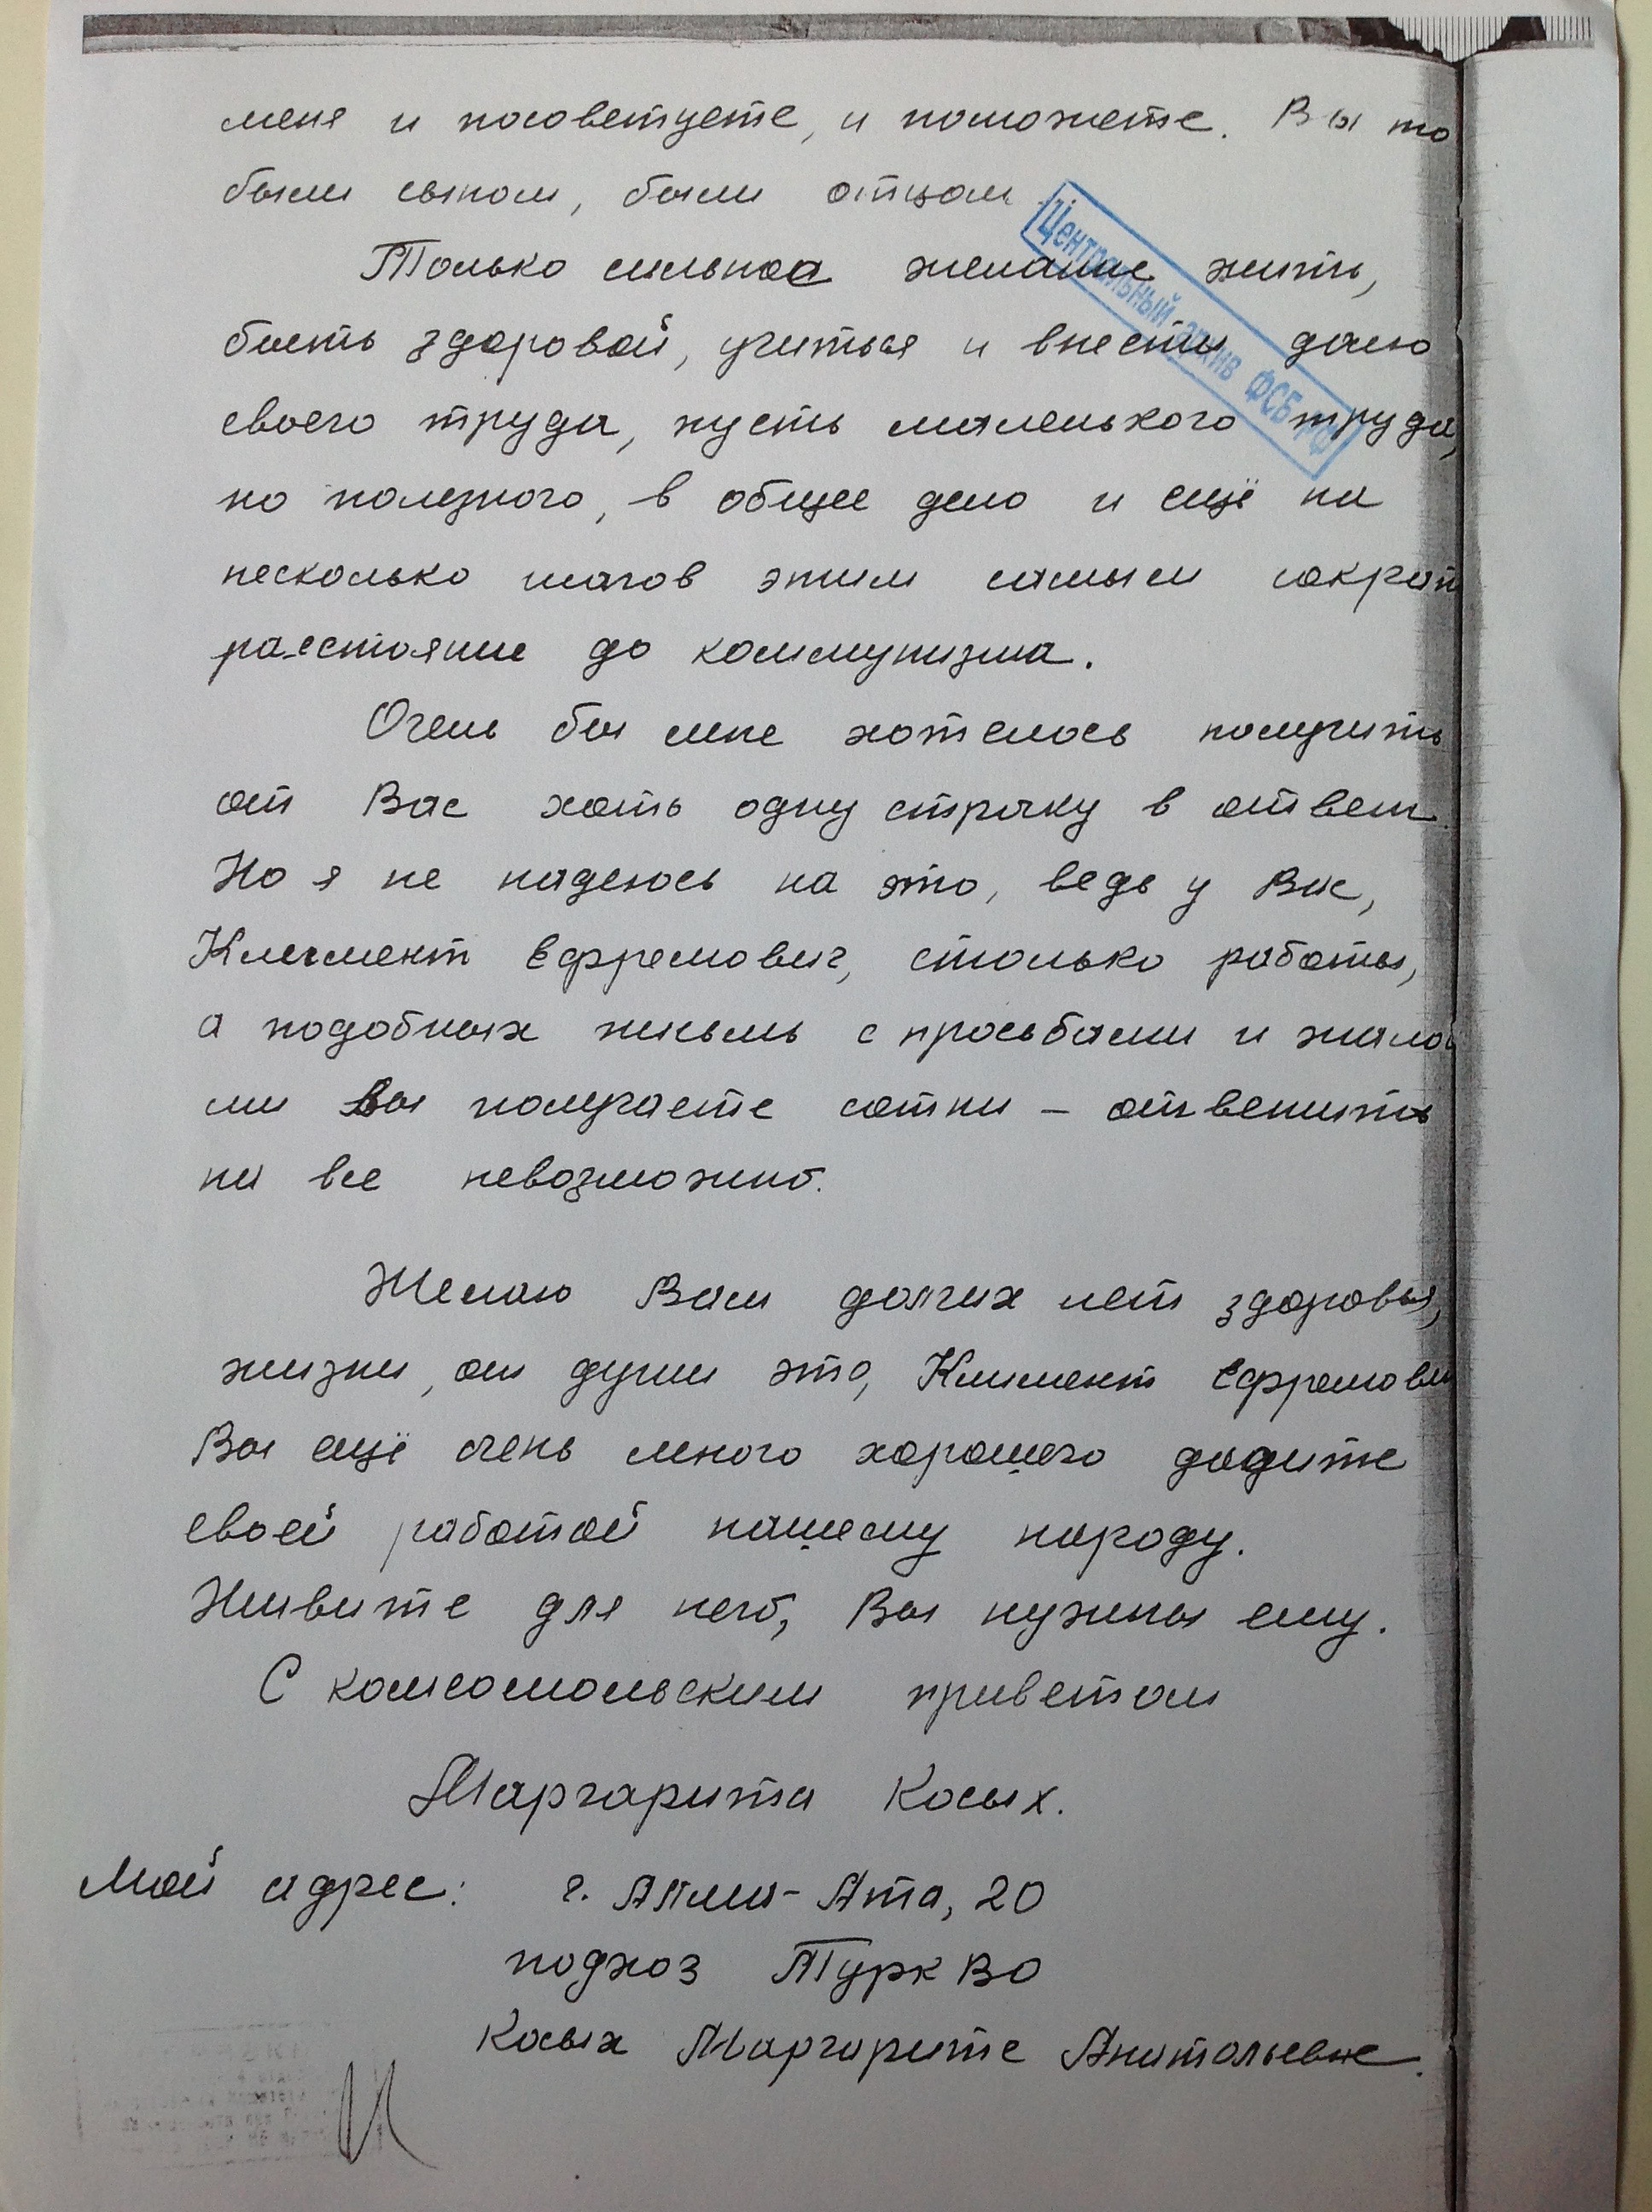 меня и посоветуете, и поможете. Вы то
были сыном, были отцом
Центральный архив ФСБ РФ
Только сильное желание жить,
быть здоровой, учиться и внести долю
своего труда, пусть маленького труда,
но полезного, в общее дело и ещё на
несколько шагов этим самым сократ
расстояние до коммунизма.
Очень бы мне хотелось получить
от Вас хоть одну строчку в ответ.
Но я не надеюсь на это, ведь у Вас,
Климент Ефремович, столько работы,
а подобных писем с просьбами и жало
ми Вы получаете сотни – ответить
на все невозможно.
Желаю Вам долгих лет здоровья,
жизни, от души это, Климент Ефремови
Вы ещё очень много хорошего дадите
своей работой нашему народу.
Живите для него, Вы нужны ему.
С комсомольским приветом
Маргарита Косых.
Мой адрес: г. Алма-Ата, 20
подхоз ТуркВО
Косых Маргарите Анатольевне.